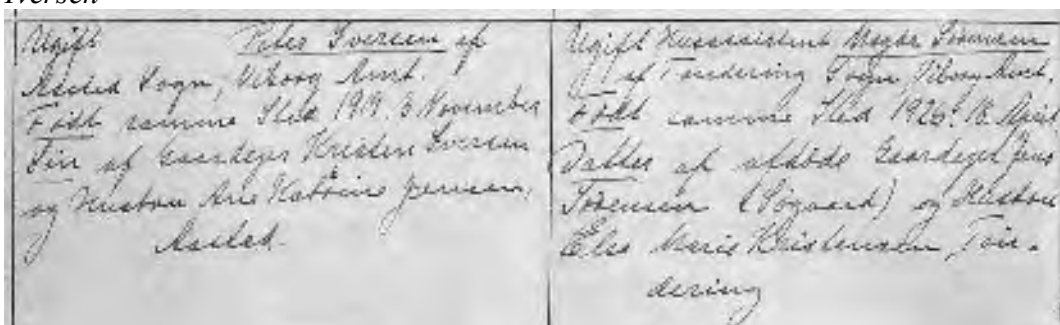 Iversen
Ugift Peter Iversen af
Aasted Sogn, Viborg Amt.
Født samme Sted 1919. 3 November
Søn af Gaardejer Kristen Iversen
og Hustru Ane Katrine Jensen,
Aasted.
Ugift Husassistent Magda Sørensen
af Tøndering Sogn, Viborg Amt,
Født samme Sted 1926. 18 April
Datter af afdøde Gaardejer Jens
Sørensen (Søgaard) og Hustru
Else Marie Kristensen, Tøn-
dering